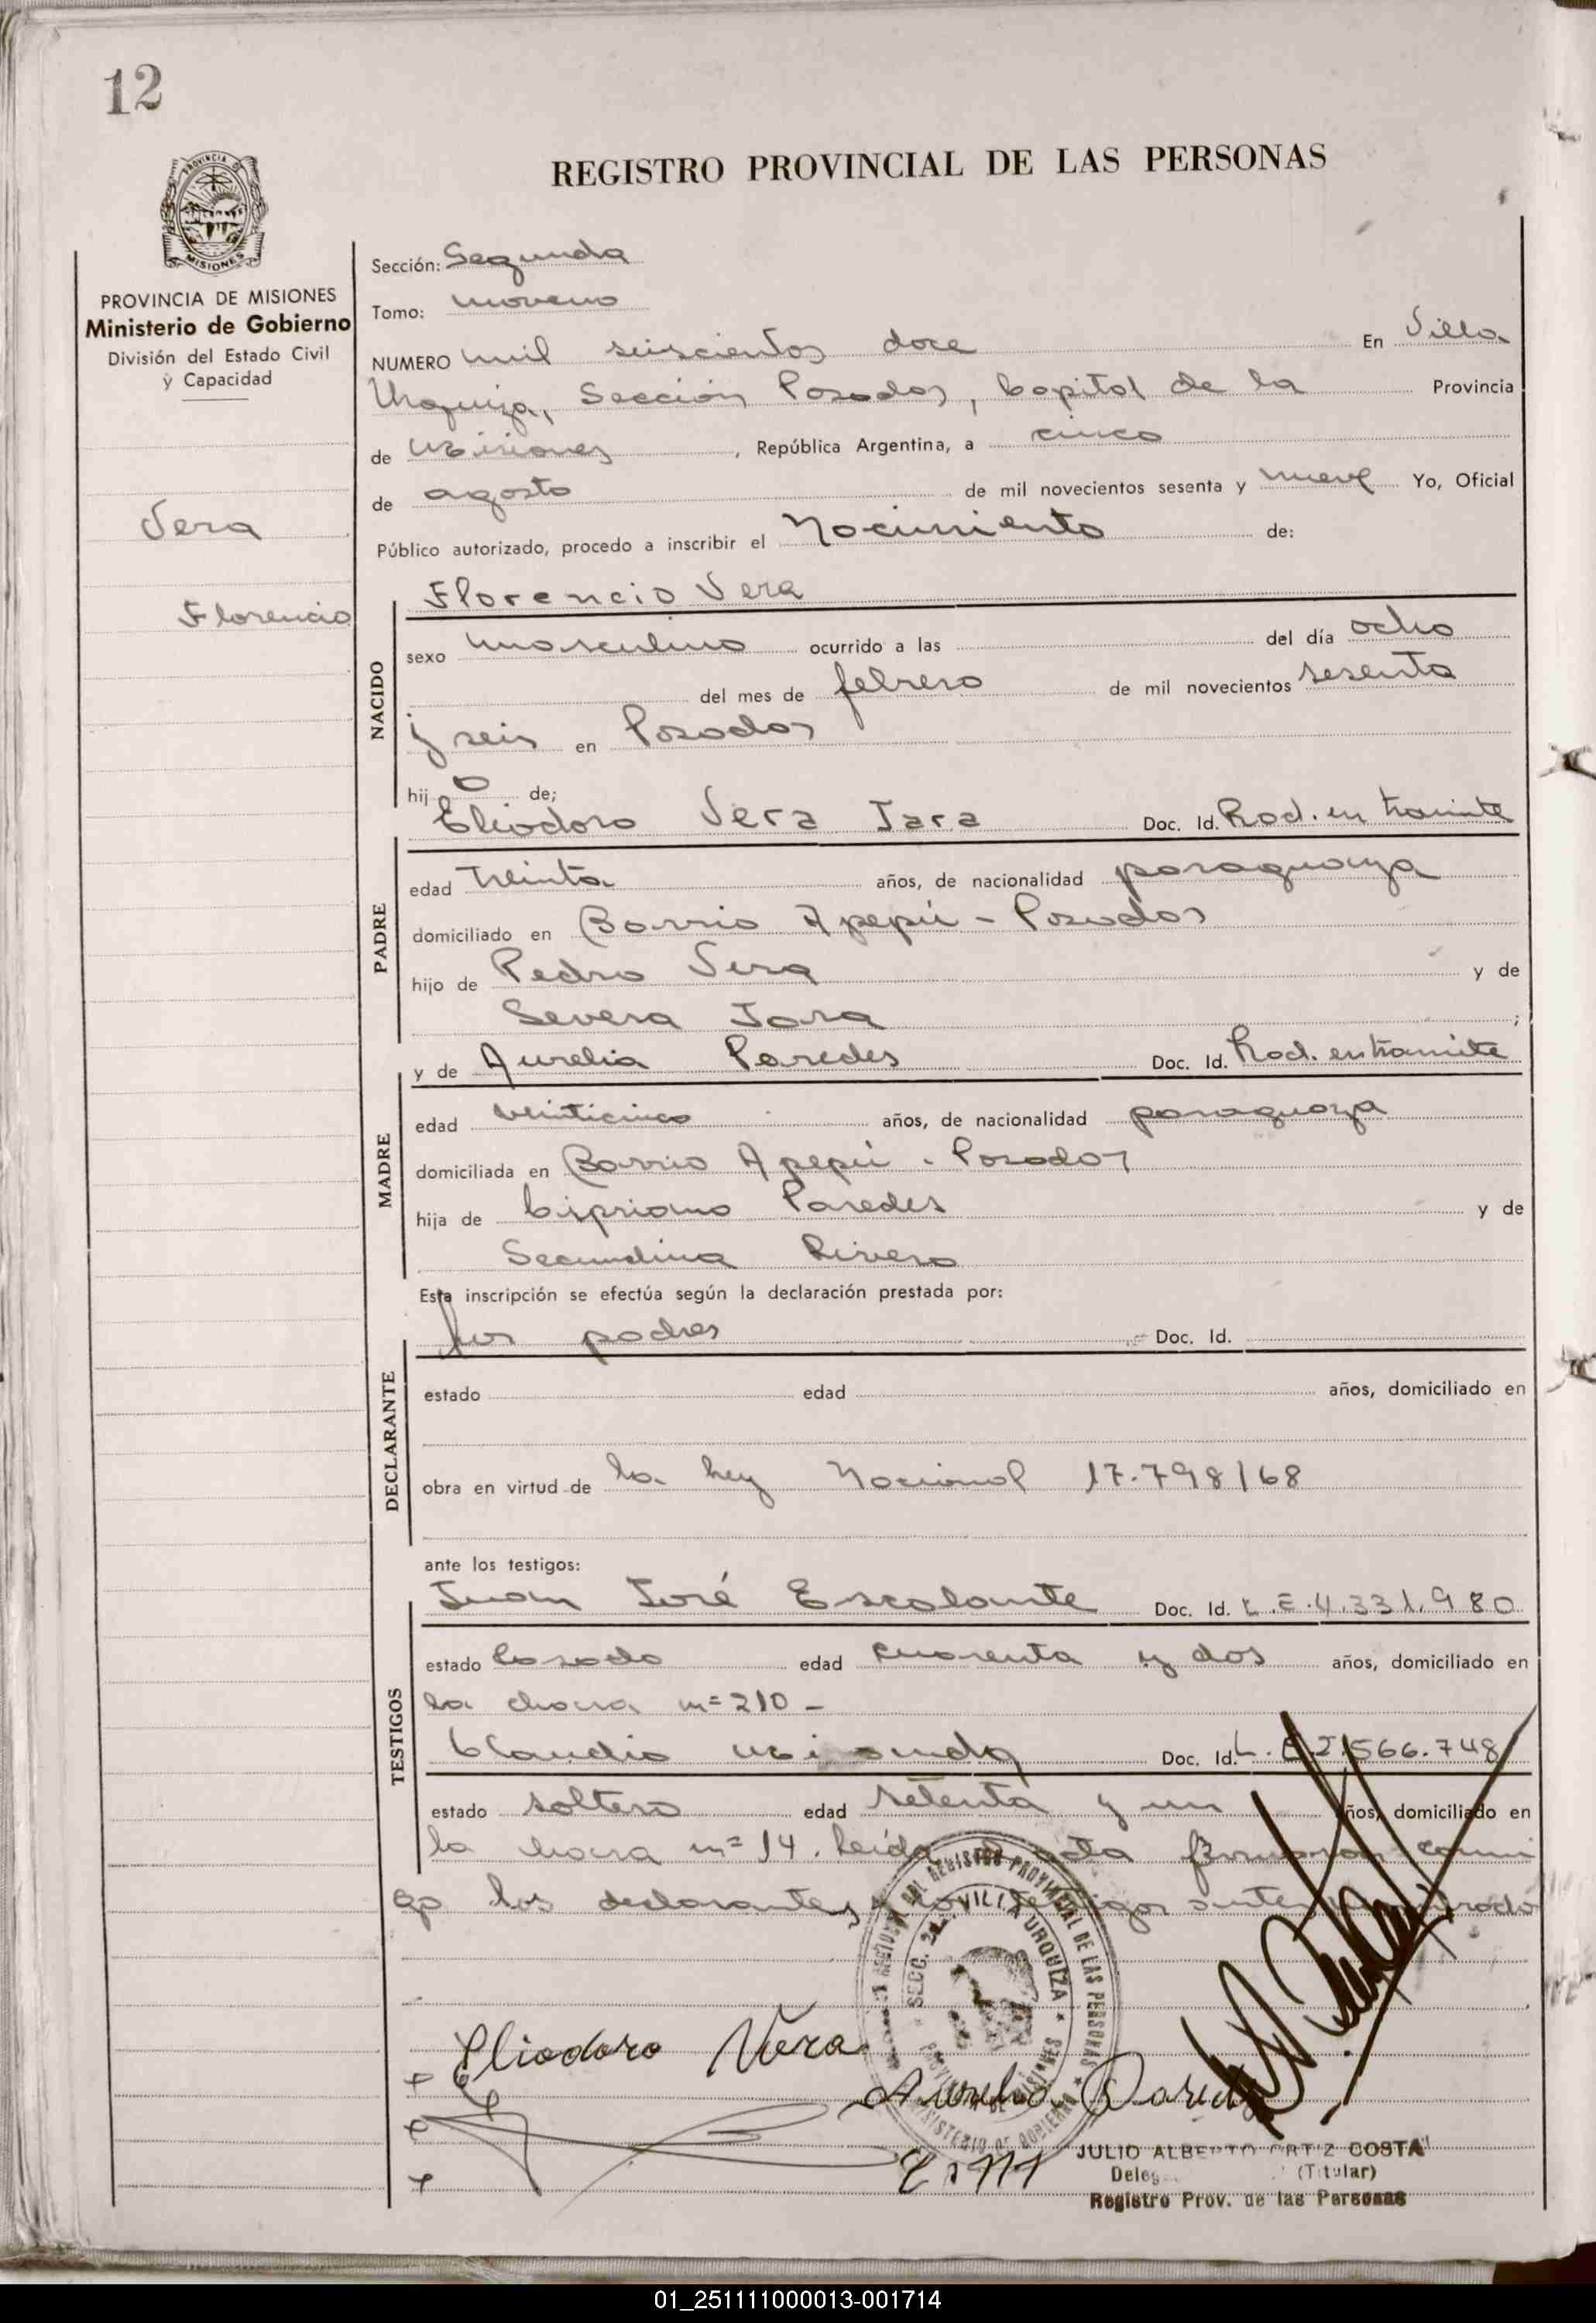 12
REGISTRO PROVINCIAL DE LAS PERSONAS
PROVINCIA DE MISIONES
Ministerio de Gobierno
División del Estado Civil
y Capacidad
Vera
Florencio
Sección: Segunda
Tomo: noveno
NUMERO mil seiscientos doce En Villa
Urquiza, Sección Posadas, Capital de la Provincia
de Misiones, República Argentina, a cinco
de agosto de mil novecientos sesenta y nueve Yo, Oficial
Público autorizado, procedo a inscribir el Nacimiento de:
Florencio Vera
NACIDO
sexo masculino ocurrido a las del día ocho
del mes de febrero de mil novecientos sesenta
y seis en Posadas
hijo de;
Eliodoro Vera Jara Doc. Id. Rad. en tramite
PADRE
edad Treinta años, de nacionalidad paraguaya
domiciliado en Barrio Apepú - Posadas
hijo de Pedro Vera y de
Severa Jara ;
y de Aurelia Paredes Doc. Id. Rad. en tramite
MADRE
edad veinticinco años, de nacionalidad paraguaya
domiciliada en Barrio Apepú - Posadas
hija de Cipriano Paredes y de
Secundina Rivero
Esta inscripción se efectúa según la declaración prestada por:
los padres Doc. Id.
DECLARANTE
estado edad años, domiciliado en
obra en virtud de la Ley Nacional 17.798/68
ante los testigos:
Juan José Escalante Doc. Id. L.E.4.331.980
TESTIGOS
estado Casado edad cuarenta y dos años, domiciliado en
la chacra nº 210 -
Claudio Miranda Doc. Id. L.E.2.566.748
estado soltero edad setenta y un años, domiciliado en
la chacra nº 14. Leída el acta firmaron conmi
go los declarantes y los testigos
Eliodoro Vera
Aurelia Paredes
SECC. 2a. VILLA URQUIZA
REGISTRO PROVINCIAL DE LAS PERSONAS
MINISTERIO DE GOBIERNO
JULIO ALBERTO ORTIZ COSTA
(Titular)
Registro Prov. de las Personas
01_251111000013-001714